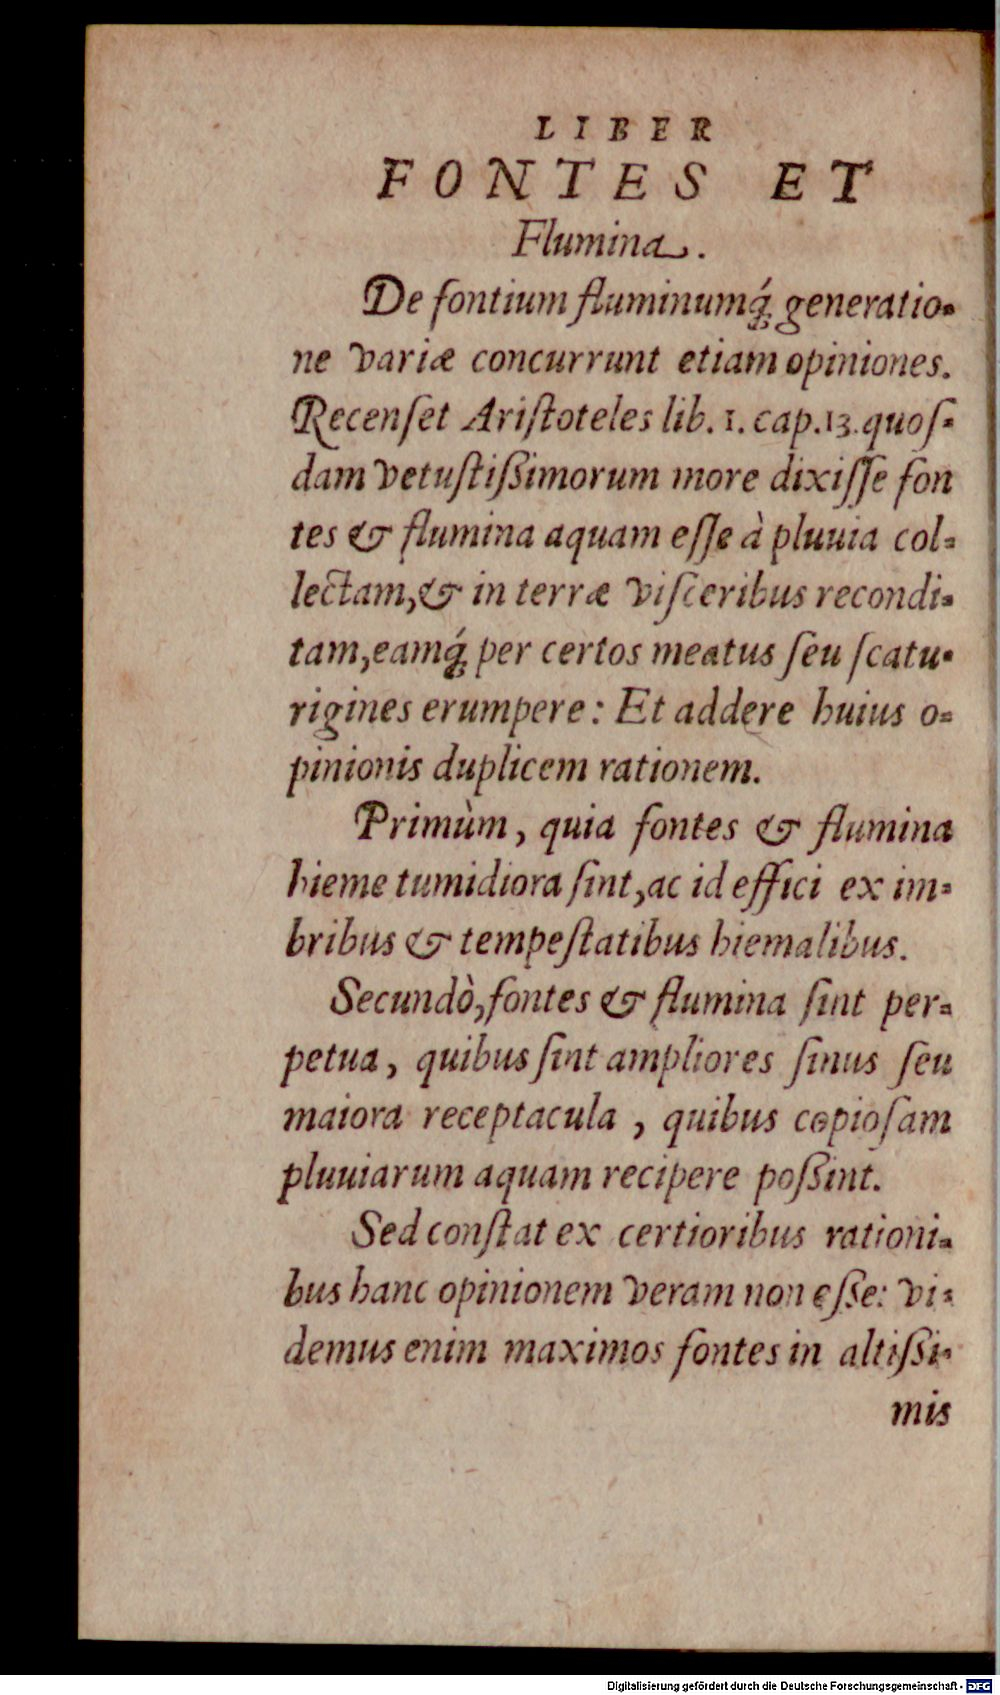 LIBER
FONTES ET
Flumina.
De fontium fluminumq́; generatio-
ne variæ concurrunt etiam opiniones.
Recenſet Ariſtoteles lib. 1. cap. 13. quoſ-
dam vetuſtißimorum more dixiſſe fon
tes & flumina aquam eſſe à pluuia col-
lectam, & in terræ viſceribus recondi-
tam, eamq́; per certos meatus ſeu ſcatu-
rigines erumpere: Et addere huius o-
pinionis duplicem rationem.
Primùm, quia fontes & flumina
hieme tumidiora ſint, ac id effici ex im-
bribus & tempeſtatibus hiemalibus.
Secundò, fontes & flumina ſint per-
petua, quibus ſint ampliores ſinus ſeu
maiora receptacula, quibus copioſam
pluuiarum aquam recipere poßint.
Sed conſtat ex certioribus rationi-
bus hanc opinionem veram non eße: vi-
demus enim maximos fontes in altißi-
mis
Digitalisierung gefördert durch die Deutsche Forschungsgemeinschaft - DFG